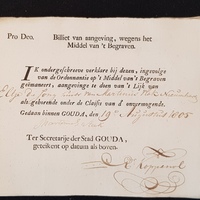 Pro Deo. Billiet van aangeving, wegens het
Middel van 't Begraven.
IK ondergeschreeve verklare bij dezen, ingevolge
van de Ordonnantie op 't Middel van 't Begraven
geëmaneert, aangevinge te doen van 't Lijk van
als gehoorende onder de Classis van d' onvermogende.
Gedaan binnen GOUDA, den 19e Augustus 1805
Ter Secretarije der Stad GOUDA,
geteikent op datum als boven.